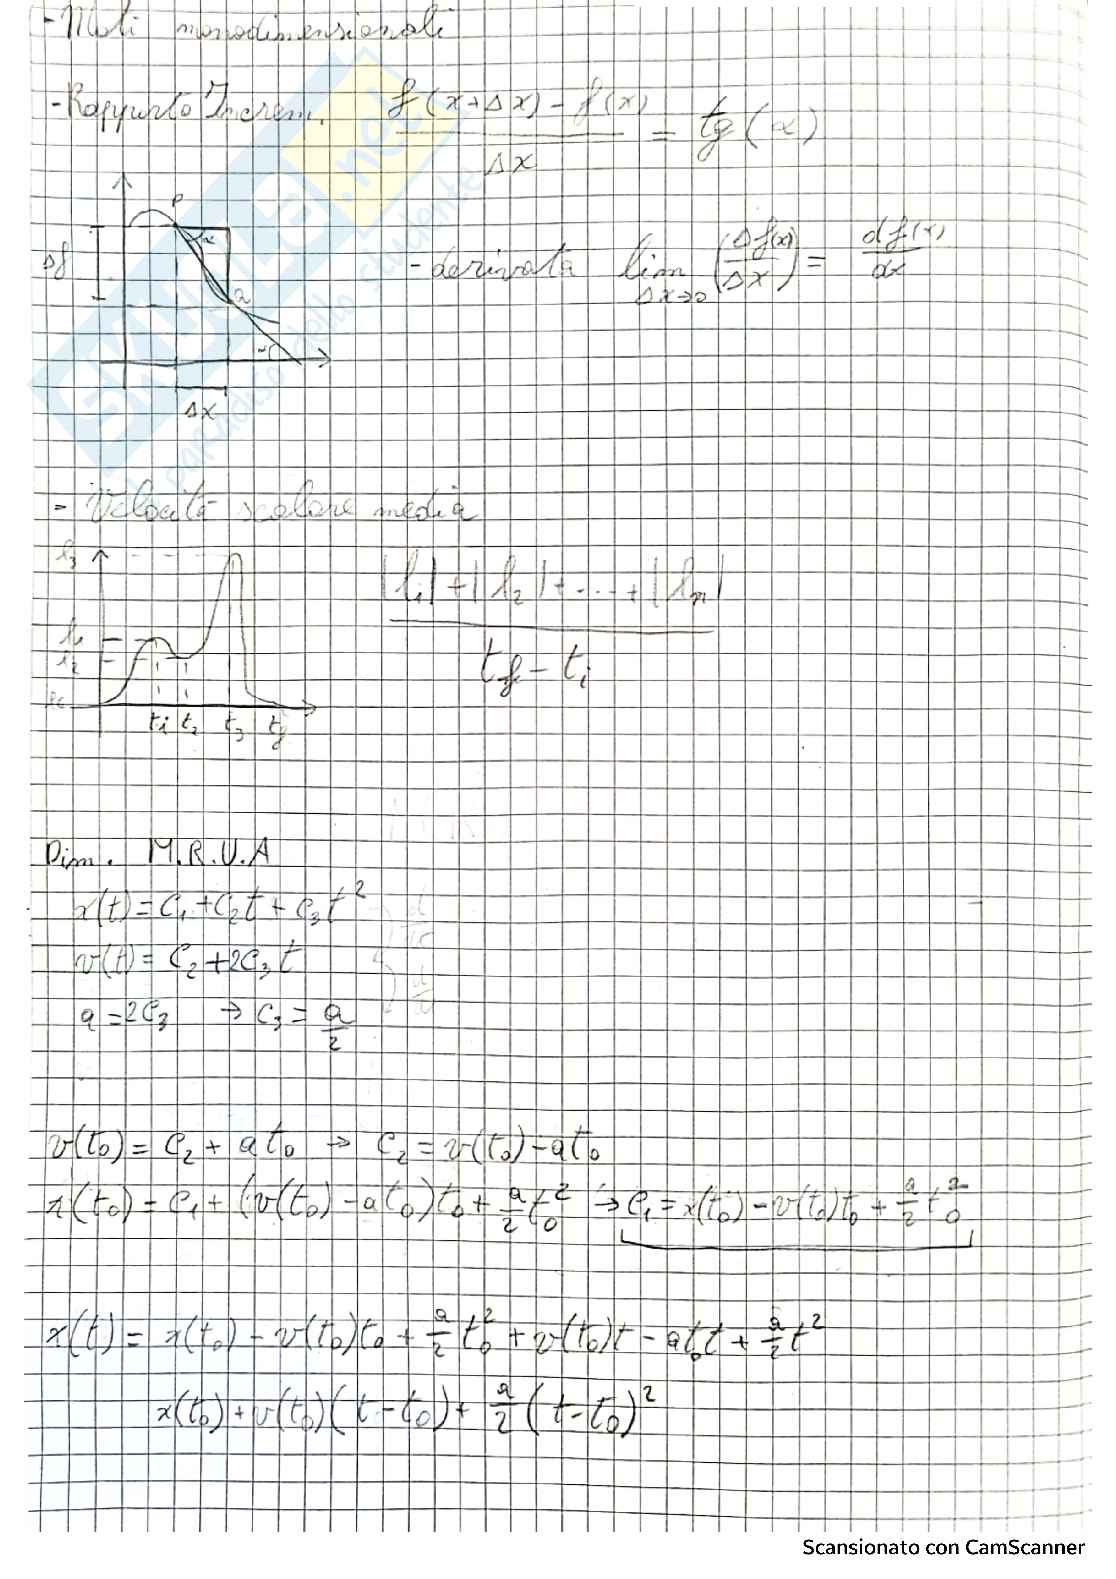 - Moti monodimensionali
- Rapporto Increm. f(x+Δx) - f(x) / Δx = tg(α)
P
α
Δf
Q
Δx
- derivata lim Δx→0 (Δf(x)/Δx) = df(x)/dx
- Velocità scalare media
l3
l1
l2
ti t2 t3 tf
|l1| + |l2| + ... + |ln| / tf - ti
Dim. M.R.U.A
x(t) = C1 + C2t + C3t²
v(t) = C2 + 2C3t
a = 2C3 → C3 = a/2
v(t0) = C2 + at0 → C2 = v(t0) - at0
x(t0) = C1 + (v(t0) - at0)t0 + a/2 t0² → C1 = x(t0) - v(t0)t0 + a/2 t0²
x(t) = x(t0) - v(t0)t0 + a/2 t0² + v(t0)t - at0t + a/2 t²
x(t0) + v(t0)(t - t0) + a/2 (t - t0)²
SKUOLA.net
il paradiso dello studente
Scansionato con CamScanner